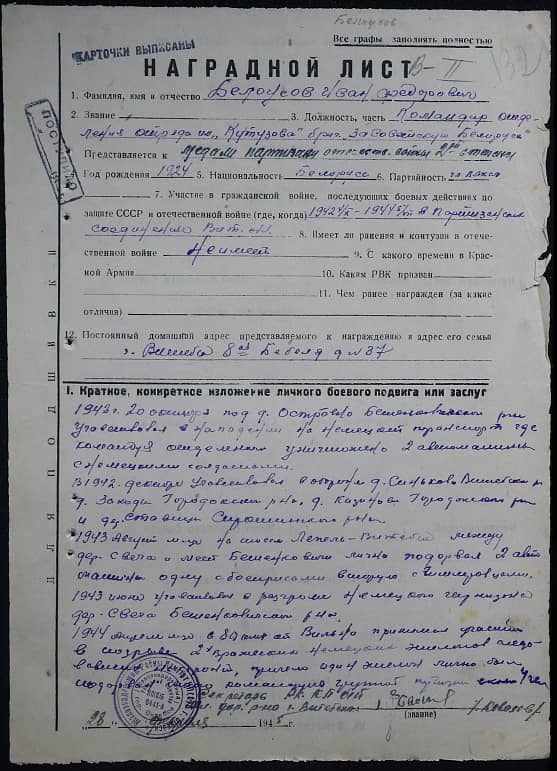 Белоусов
Все графы заполнять полностью
КАРТОЧКИ ВЫПИСАНЫ
132
НАГРАДНОЙ ЛИСТ
В-II
1. Фамилия, имя и отчество Белоусов Иван Федорович
2. Звание 3. Должность, часть Командир отде-
ления отряда им. "Кутузова" бриг. За Советскую Белоруссию
Представляется к медали партизану отечеств. войны 2й степени
4. Год рождения 1924 5. Национальность Белорусс 6. Партийность
7. Участие в гражданской войне, последующих боевых действиях по
защите СССР и отечественной войне (где, когда) в Партизанском
соединении Вит. обл. 8. Имеет ли ранения и контузии в отече-
ственной войне Не имеет 9. С какого времени в Крас-
ной Армии 10. Каким РВК призван
11. Чем ранее награжден (за какие
отличия)
12. Постоянный домашний адрес представляемого к награждению и адрес его семьи
г. Витебск 8ая Бебеля д № 37
ДЛЯ ПОДШИВКИ
I. Краткое, конкретное изложение личного боевого подвига или заслуг
1943г. 20 октября под д. Островно Бешенковичского р-на
участвовал в нападении на немецкий транспорт где
командуя отделением уничтожено 2 автомашины
с немецкими солдатами.
В 1942 декабре участвовал в обороне д. Синьково Витебского р-на
д. Заходы Городокского р-на, д. Казиново Городокского р-на
и дер. Ставцы Сиротинского р-на
1943 Август м-це на шоссе Лепель-Витебск между
дер. Свеча и мест Бешенковичи лично подорвал 2 авто
машины одну с боеприпасами вторую с гитлеровцами.
1943 июне участвовал в разгроме немецкого гарнизона
дер. Свеча Бешенковичского р-на.
1944 м-це в принимал участие
в подрыве 2х вражеских немецких эшелонов
причем один эшелон лично был
Секретарь РК КП(б)Б
г. Витебска
(звание)
28 1945 г.